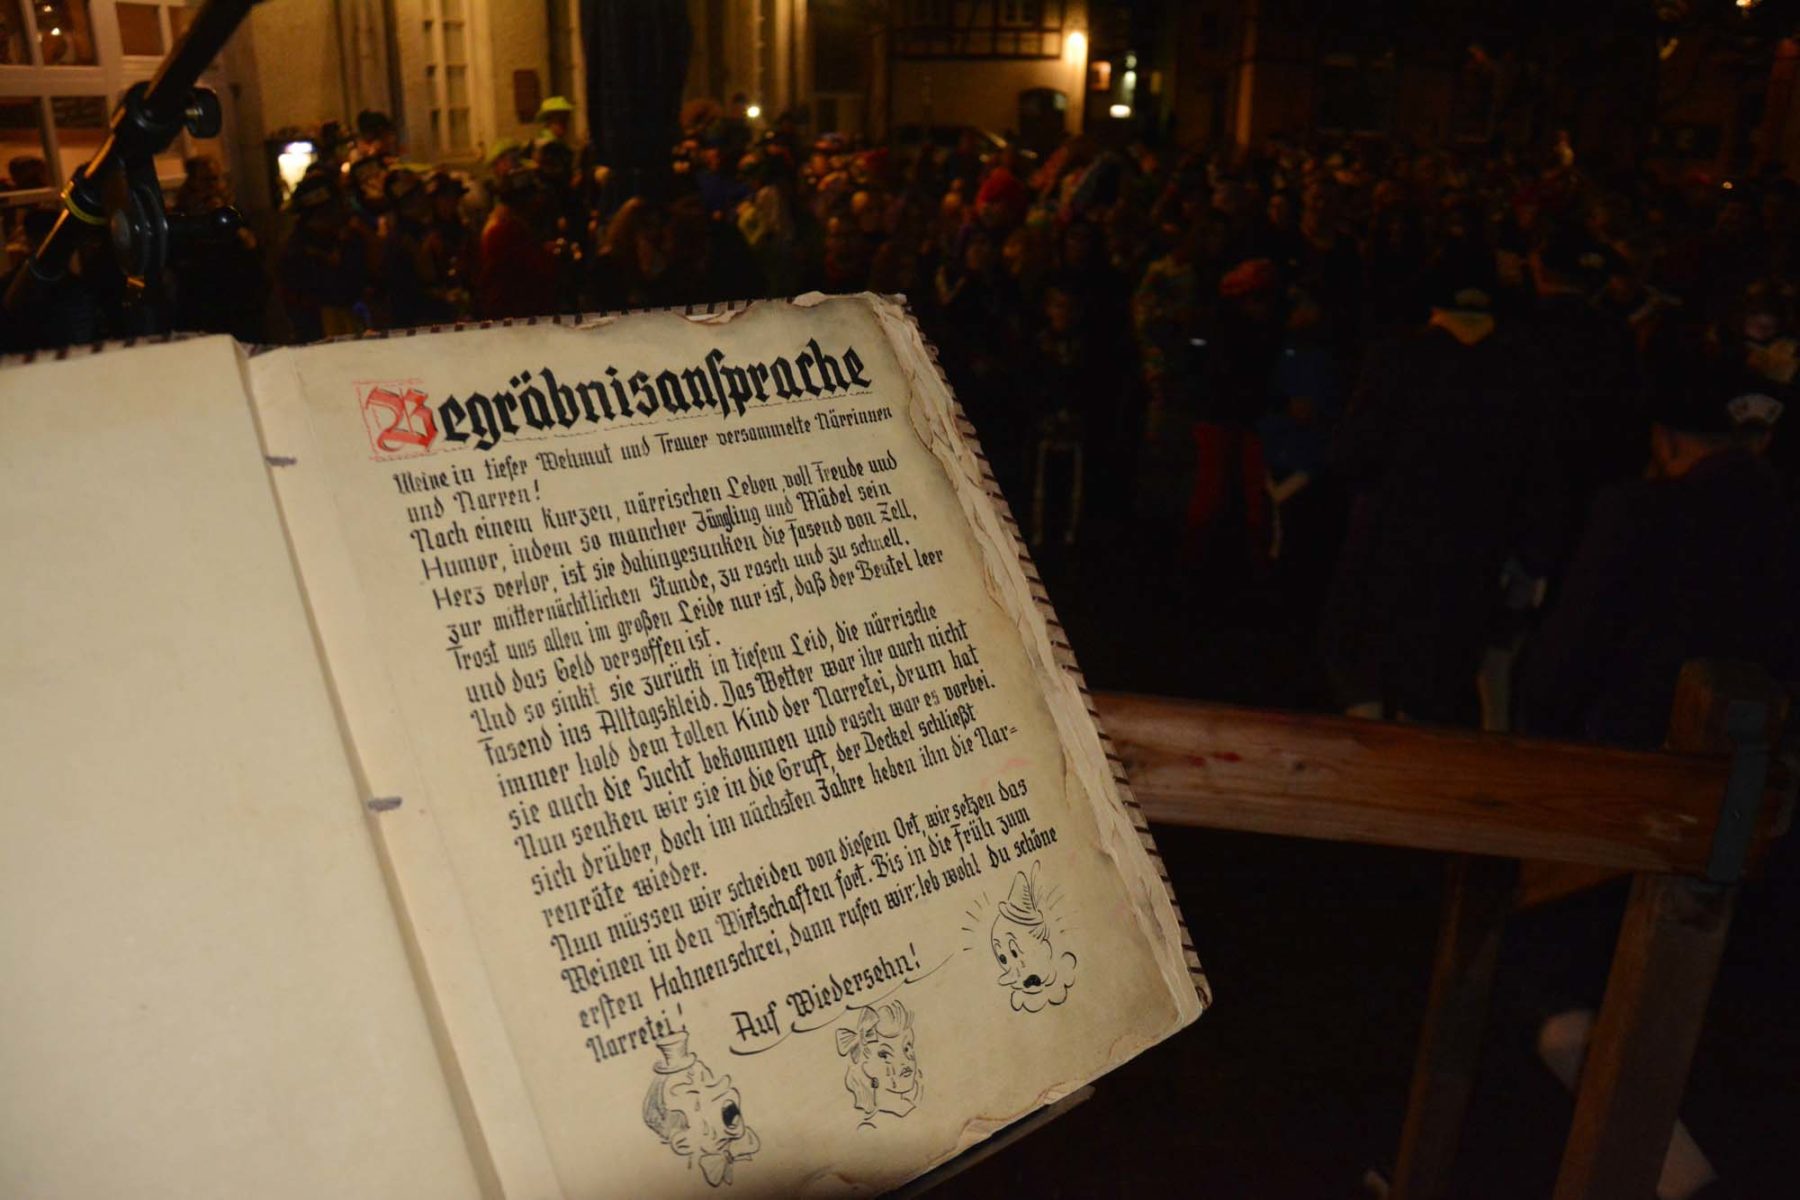 Begräbnisansprache
Meine in tiefer Wehmut und Trauer versammelte Närrinnen
und Narren!
Nach einem kurzen, närrischen Leben voll Freude und
Humor, indem so mancher Jüngling und Mädel sein
Herz verlor, ist sie dahingesunken die Fasend von Zell,
zur mitternächtlichen Stunde, zu rasch und zu schnell.
Trost uns allen im großen Leide nur ist, daß der Beutel leer
und das Geld versoffen ist.
Und so sinkt sie zurück in tiefem Leid, die närrische
Fasend ins Alltagskleid. Das Wetter war ihr auch nicht
immer hold dem tollen Kind der Narretei, drum hat
sie auch die Sucht bekommen und rasch war es vorbei.
Nun senken wir sie in die Gruft, der Deckel schließt
sich drüber, doch im nächsten Jahre heben ihn die Nar=
renräte wieder.
Nun müssen wir scheiden von diesem Ort, wir setzen das
Weinen in den Wirtschaften fort. Bis in die Früh zum
ersten Hahnenschrei, dann rufen wir: leb wohl du schöne
Narretei!
Auf Wiedersehn!